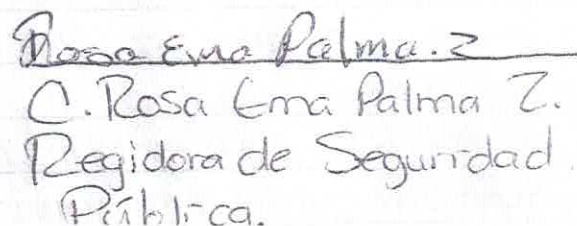 Rosa Ema Palma. Z
C. Rosa Ema Palma Z.
Regidora de Seguridad
Pública.